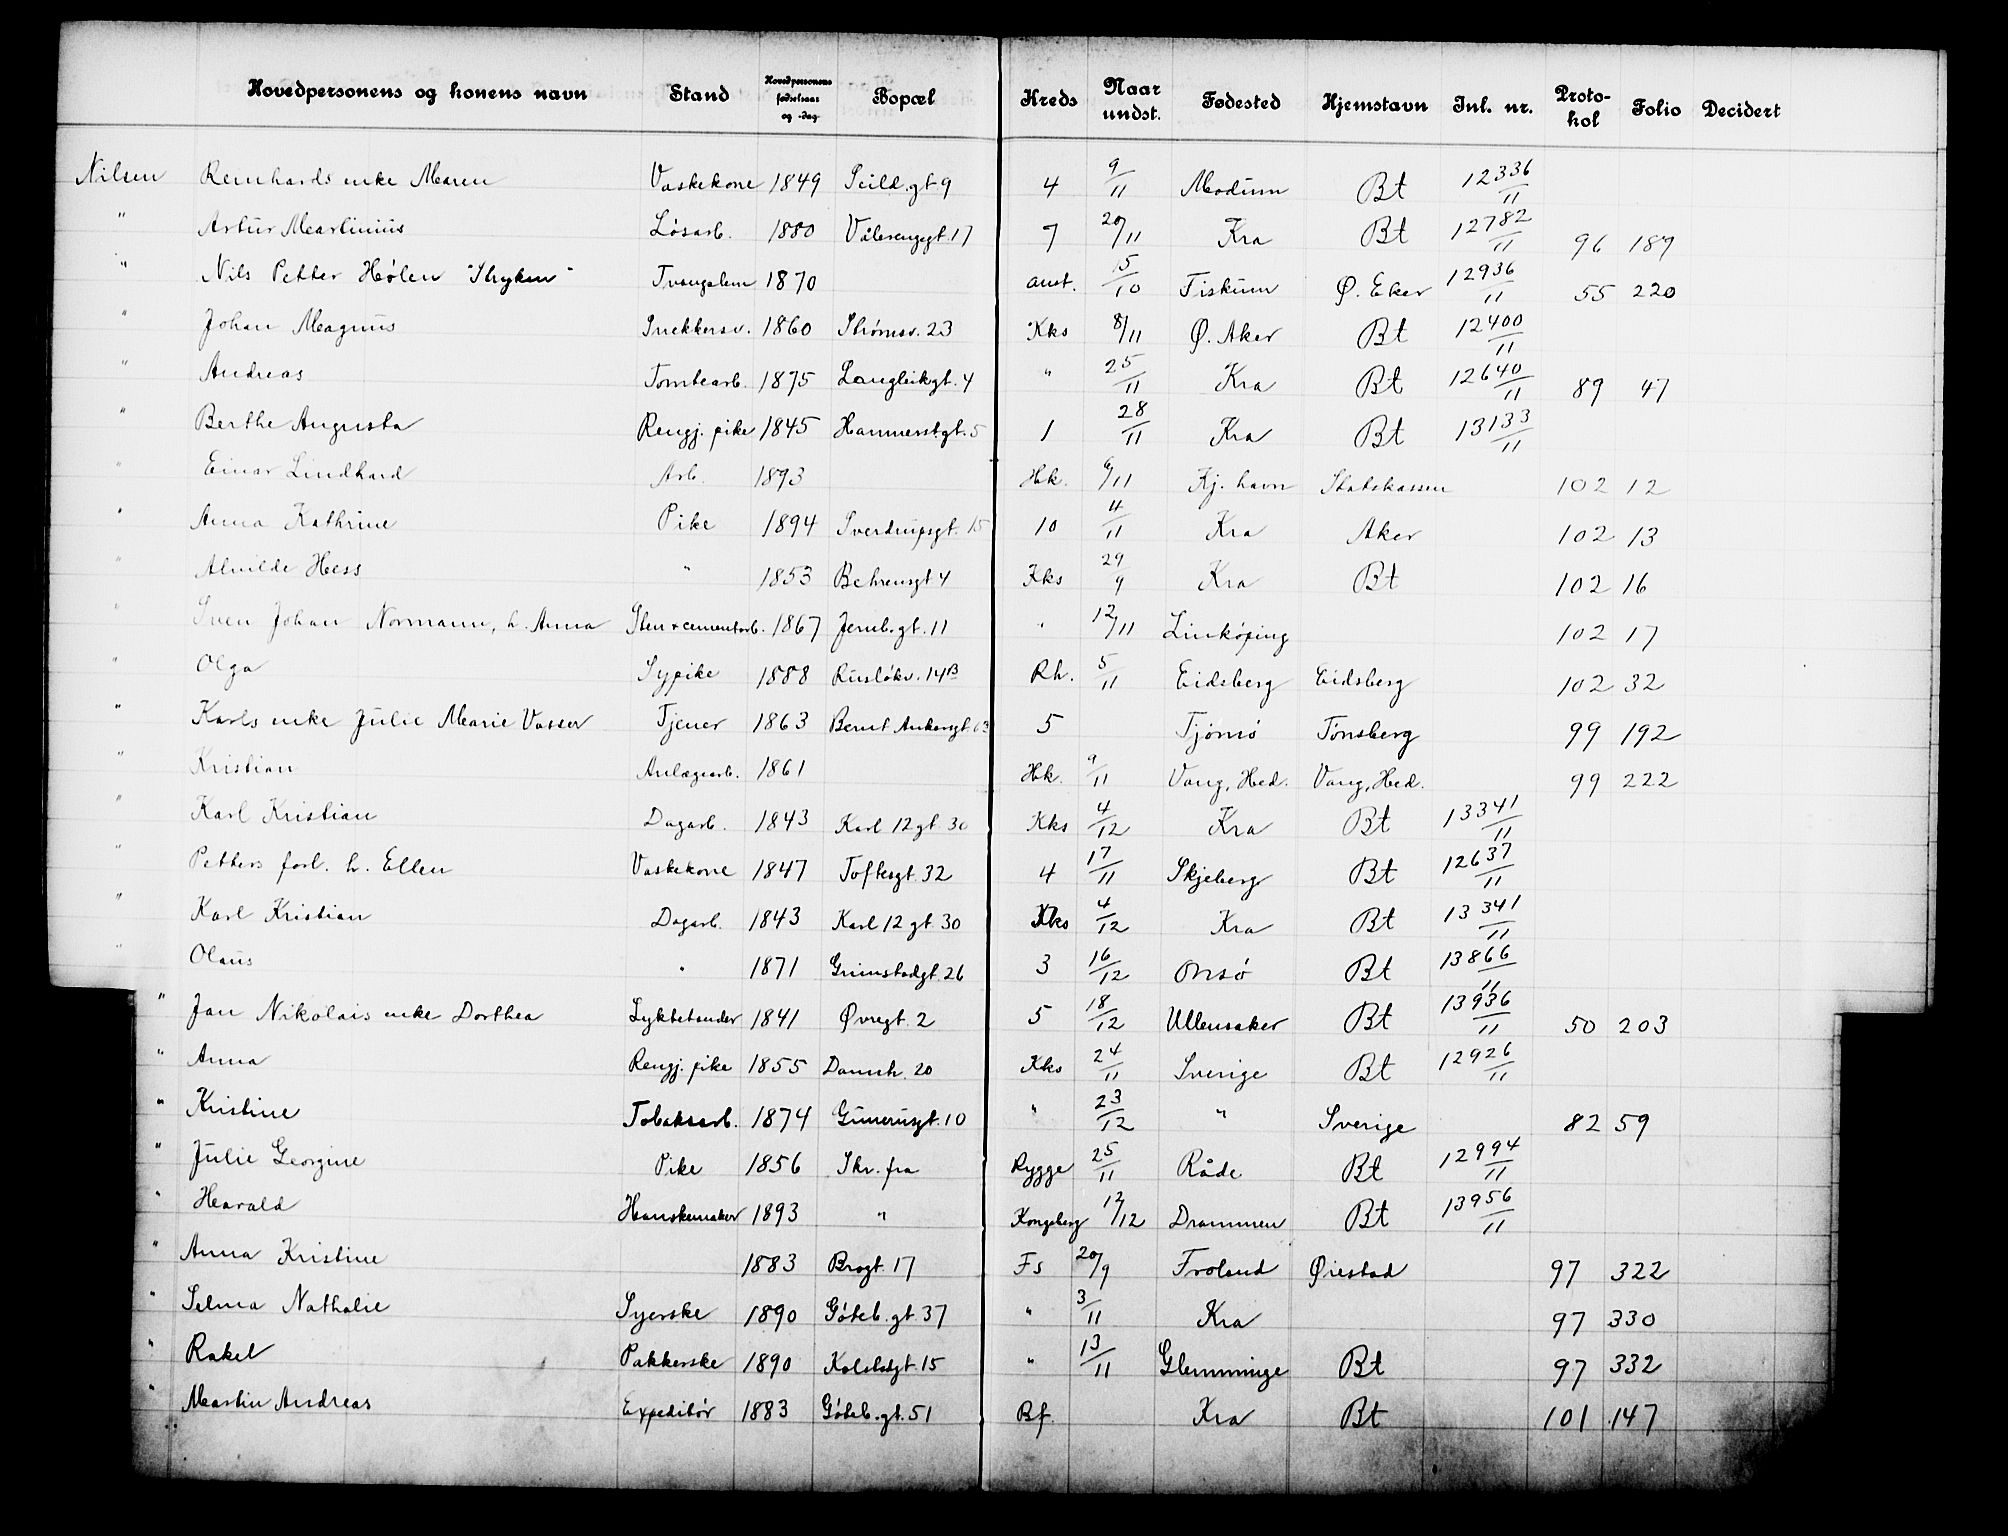 Hovedpersonens og konens navn Stand Hovedpersonens fødselsaar og -dag Bopæl Kreds Naar undst. Fødested Hjemstavn Inl. nr. Proto-kol Folio Decidert
Nilsen Reinhards enke Maren Vaskekone 1849 Seild.gt 9 4 9/11 Modum Bt 12336/11
" Artur Martinius Løsarb. 1880 Vålerenggt. 17 7 20/11 Kra Bt 12782/11 96 187
" Nils Petter Hølen "Stryken" Tvangslem 1870 anst. 15/10 Fiskum Ø. Eker 12936/11 55 220
" Johan Magnus Snekkersv. 1860 Strømsv. 23 Kks 8/11 Ø. Aker Bt 12400/11
" Andreas Tomtearb. 1875 Langleikgt. 4 " 25/11 Kra Bt 12640/11 89 47
" Berthe Augusta Rengj. pike 1845 Hammerst.gt. 5 1 28/11 Kra Bt 13133/11
" Einar Lindhard Arb. 1893 Hk. 6/11 Kj. havn Statskassen 102 12
" Anna Kathrine Pike 1894 Sverdrupsgt. 15 10 4/11 Kra Aker 102 13
" Alvilde Hess " 1853 Behrensgt 4 Kks 29/9 Kra Bt 102 16
" Sven Johan Normann, h. Anna Sten & cementarb. 1867 Jernb.gt. 11 " 12/11 Linköping 102 17
" Olga Sypike 1888 Rusløkv. 14B Rh. 5/11 Eidsberg Eidsberg 102 32
" Karls enke Julie Marie Vasser Tjener 1863 Bernt Ankersgt. 63 5 Tjømø Tønsberg 99 192
" Kristian Anlægsarb. 1861 Hk. 9/11 Vang, Hed. Vang, Hed. 99 222
" Karl Kristian Dagarb. 1843 Karl 12 gt. 30 Kks 4/12 Kra Bt 13341/11
" Petters forl. h. Ellen Vaskekone 1847 Toftesgt. 32 4 17/11 Skjeberg Bt 12637/11
" Karl Kristian Dagarb. 1843 Karl 12 gt. 30 Kks 4/12 Kra Bt 13341/11
" Olaus " 1871 Grimstadgt. 26 3 16/12 Onsø Bt 13866/11
" Jan Nikolais enke Dorthea Lyktetænder 1841 Øvregt. 2 5 18/12 Ullensaker Bt 13936/11 50 203
" Anna Rengj. pike 1855 Damstr. 20 Kks 24/11 Sverige Bt 12926/11
" Kristine Tobaksarb. 1874 Gunerusgt. 10 " 23/12 " Sverige 82 59
" Julie Georgine Pike 1856 Skr. fra Rygge 25/11 Råde Bt 12994/11
" Harald Hanskemaker 1893 " Kongsberg 12/12 Drammen Bt 13956/11
" Anna Kristine 1883 Brogt. 17 Fs 20/9 Froland Øiestad 97 322
" Selma Nathalie Syerske 1890 Göteb.gt. 37 " 3/11 Kra 97 330
" Rakel Pakkerske 1890 Kalstsgt. 15 " 13/11 Glemminge Bt 97 332
" Martin Andreas Expeditør 1883 Göteb.gt. 51 Bf. Kra Bt 101 147